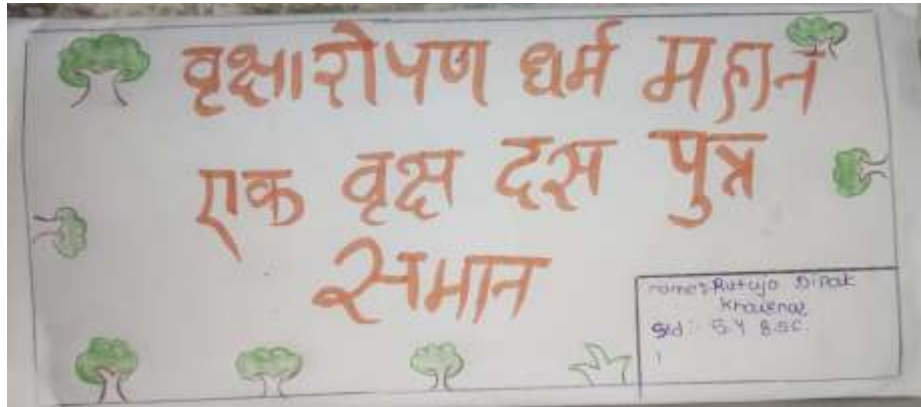 वृक्षारोपण धर्म महान
एक वृक्ष दस पुत्र
समान
name:- Rutuja Dipak
Khairnar
Std :- S.Y B.SC.